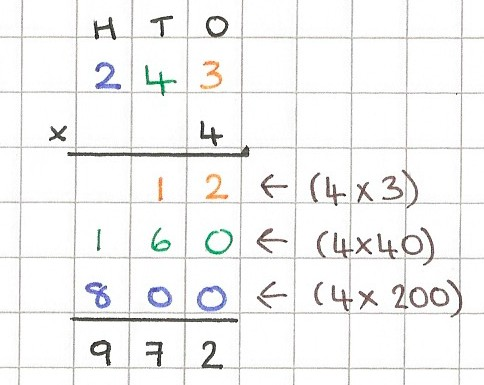 H T O
2 4 3
x 4
1 2 ← (4 x 3)
1 6 0 ← (4x40)
8 0 0 ← (4x 200)
9 7 2